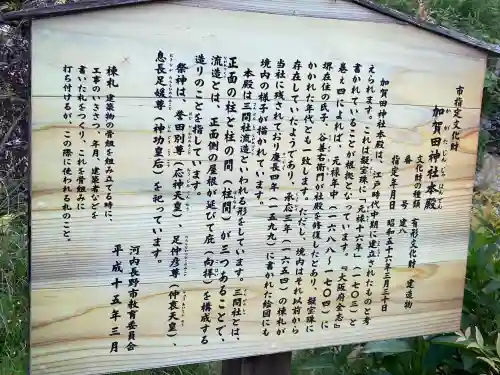 市指定文化財
加賀田神社本殿
かがたじんじゃほんでん
文化財の種類 有形文化財 建造物
番号 建八
指定年月日 昭和五十六年三月三十日
加賀田神社本殿は、江戸時代中期に建立されたものと考
えられます。これは擬宝珠に「元禄十六年」(一七〇三)と
書かれていることが根拠となっています。『大阪府全志』
巻之四によれば、元禄年中(一六八八〜一七〇四)に
堺在住の氏子、谷善右衛門が社殿を修復したとあり、擬宝珠に
かかれた年代とも一致します。ただし、境内はそれ以前から
存在していたようであり、承応三年(一六五四)の棟札が
当社に残されており慶長四年(一五九九)に書かれた絵図にも
境内の様子が描かれています。
本殿は三間社流造といわれる形をしています。三間社とは、
正面の柱と柱の間(柱間)が三つあることで、
流造とは、正面側の屋根が延びて庇(向拝)を構成する
造りのことを指しています。
祭神は、誉田別尊(応神天皇)、足仲彦尊(仲哀天皇)、
息長足媛尊(神功皇后)を祀っています。
棟札 建築物の骨組を組み立てる時に、
工事のいきさつ、年月、建築者などを
書いた札をつくり、これを骨組みに
打ち付けるが、この際に使われる札のこと。
平成十五年三月
河内長野市教育委員会